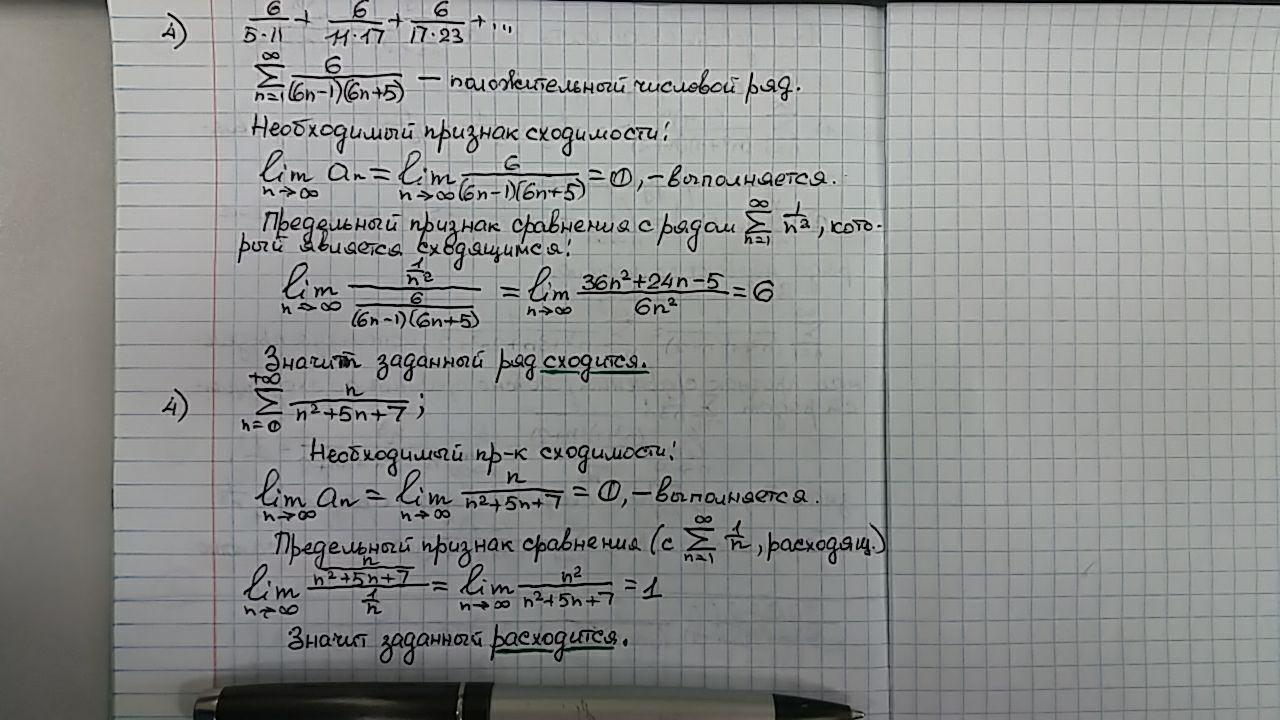 1) 6/(5·11) + 6/(11·17) + 6/(17·23) + ...
∑_{n=1}^{∞} 6/((6n−1)(6n+5)) — положительный числовой ряд.
Необходимый признак сходимости:
lim_{n→∞} aₙ = lim_{n→∞} 6/((6n−1)(6n+5)) = 0, – выполняется.
Предельный признак сравнения с рядом ∑_{n=1}^{∞} 1/n², кото-
рый является сходящимся:
lim_{n→∞} (1/n²)/(6/((6n−1)(6n+5))) = lim_{n→∞} (36n²+24n−5)/(6n²) = 6
Значит заданный ряд сходится.
4) ∑_{n=0}^{+∞} n/(n²+5n+7);
Необходимый пр-к сходимости:
lim_{n→∞} aₙ = lim_{n→∞} n/(n²+5n+7) = 0, – выполняется.
Предельный признак сравнения (с ∑_{n=1}^{∞} 1/n, расходящ.)
lim_{n→∞} (n/(n²+5n+7))/(1/n) = lim_{n→∞} n²/(n²+5n+7) = 1
Значит заданный расходится.